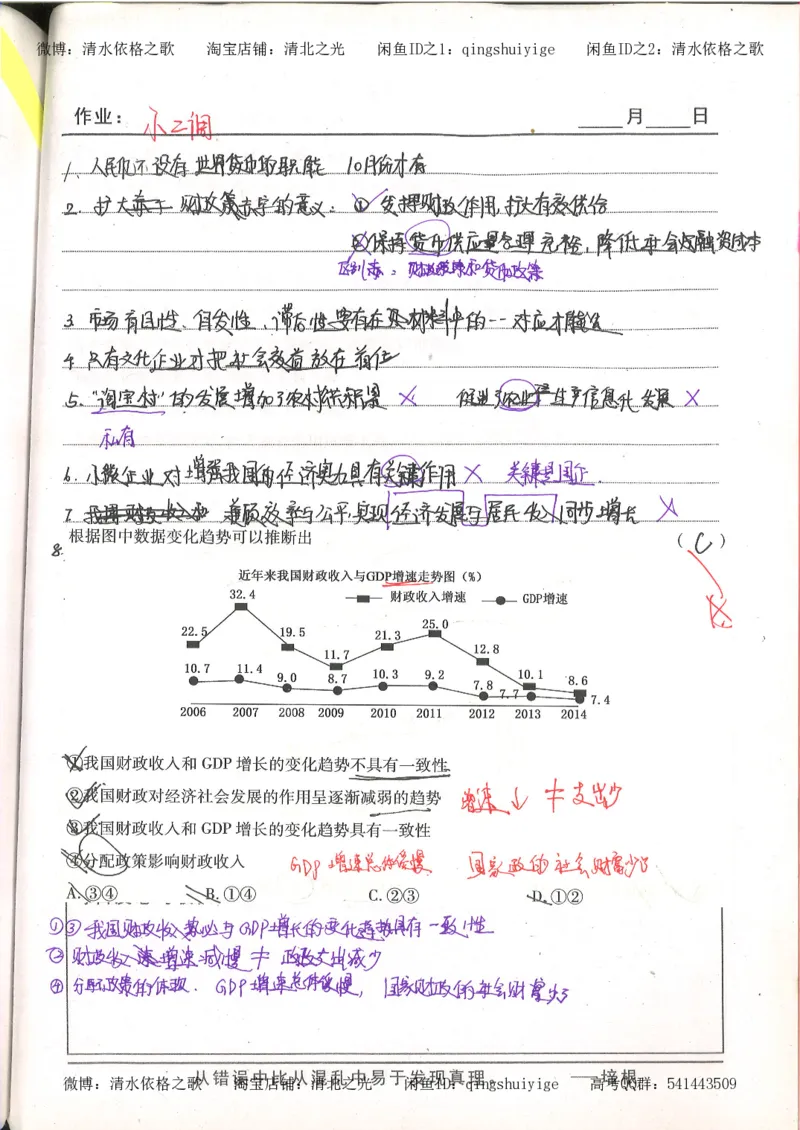 微博：清水依格之歌 淘宝店铺：清北之光 闲鱼ID之1：qingshuiyige 闲鱼ID之2：清水依格之歌
作业： 小二调 月 日
1. 人民币不没有世界货币的职能 10月份才有
2. 扩大 财政 赤字的意义：① 发挥财政作用，扩大有效供给
②保持货币供应量合理充裕，降低社会融资成本
区别：财政政策和货币政策
3. 市场盲目性、自发性、滞后性要有在 材料中的一一对应才能选
4. 只有文化企业才把社会效益放在首位
5. "淘宝村"的发展增加了农村 × 促进了农业产生产信息化发展 ×
私有
6. 小微企业对增强我国的经济实力具有关键作用 × 关键是国企.
7. 兼顾效率与公平，实现经济发展与居民收入同步增长 ×
8. 根据图中数据变化趋势可以推断出 （ C ）
近年来我国财政收入与GDP增速走势图（%）
财政收入增速 GDP增速
22.5 32.4 19.5 11.7 21.3 25.0 12.8 10.1 8.6
10.7 11.4 9.0 8.7 10.3 9.2 7.8 7.7 7.4
2006 2007 2008 2009 2010 2011 2012 2013 2014
①我国财政收入和 GDP 增长的变化趋势不具有一致性
②我国财政对经济社会发展的作用呈逐渐减弱的趋势 增速↓ ≠ 支出少
③我国财政收入和 GDP 增长的变化趋势具有一致性
④分配政策影响财政收入 GDP增速总体缓慢 国家 的社会财富少了
A. ③④ B. ①④ C. ②③ D. ①②
①③ 我国财政收入 与GDP增长的变化趋势具有一致性
② 财政收入 增速减慢 ≠ 财政支出减少
④ 分配政策的体现. GDP增速总体缓慢，国家财政的社会财富少了
从错误中比从混乱中易于发现真理。 ——培根
微博：清水依格之歌 淘宝店铺：清北之光 闲鱼ID：qingshuiyige 高考QQ群：541443509